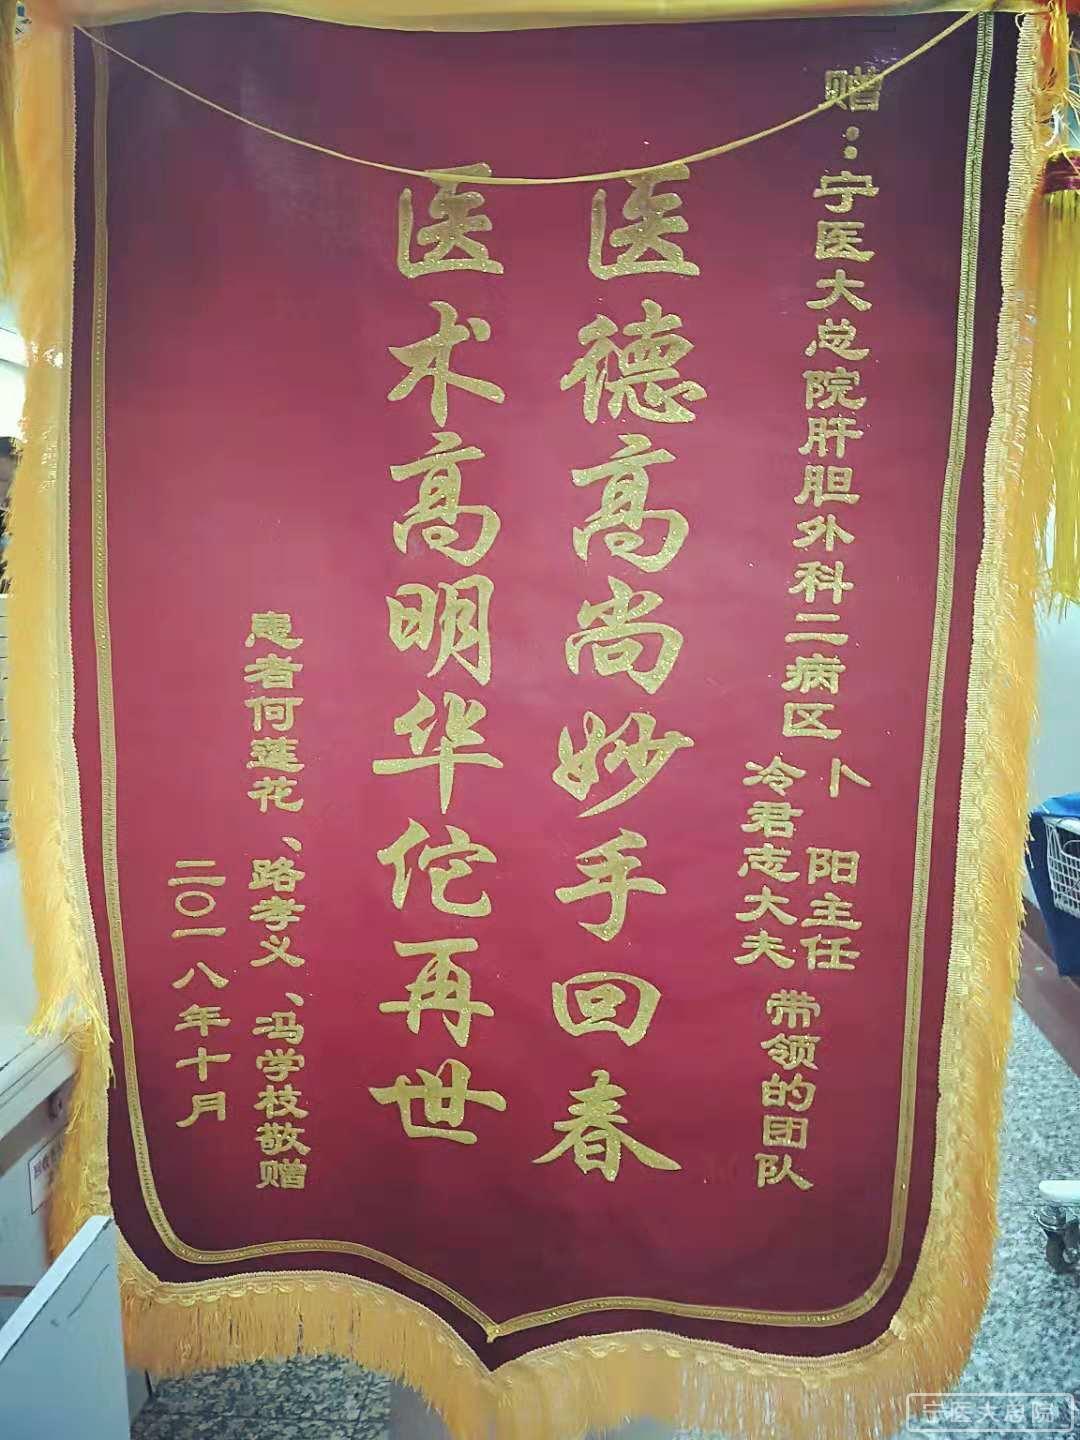 赠：宁医大总院肝胆外科二病区
卜阳主任
冷君志大夫
带领的团队
医德高尚妙手回春
医术高明华佗再世
患者何莲花、路孝义、冯学枝敬赠
二〇一八年十月
宁医大总院